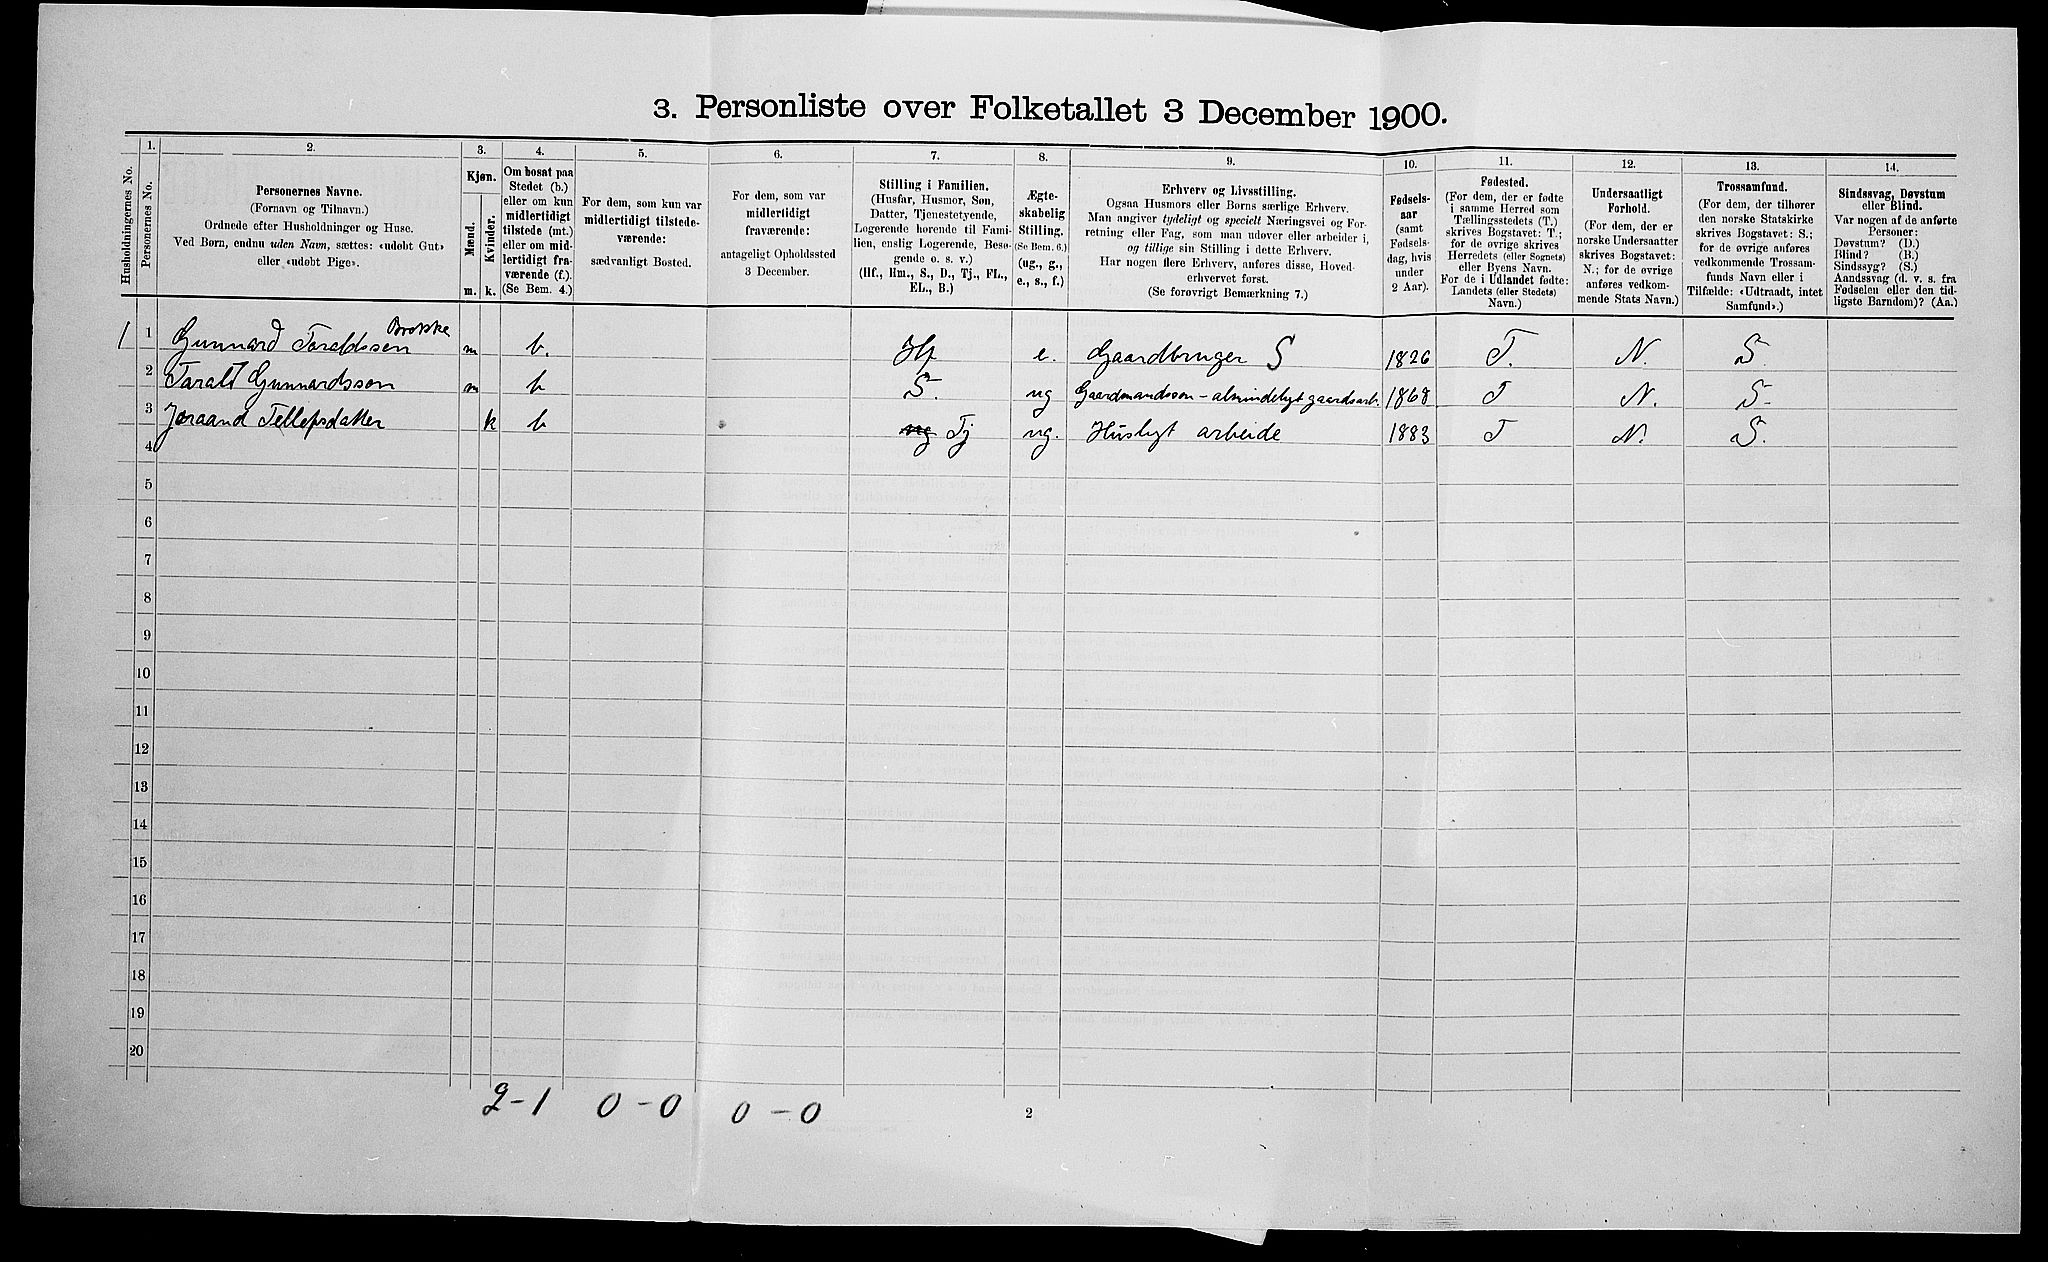 3. Personliste over Folketallet 3 December 1900.
1. 2. 3. 4. 5. 6. 7. 8. 9. 10. 11. 12. 13. 14.
Husholdningernes No.
Personernes No.
Personernes Navne.
(Fornavn og Tilnavn.)
Ordnede efter Husholdninger og Huse.
Ved Børn, endnu uden Navn, sættes: «udøbt Gut»
eller «udøbt Pige».
Kjøn.
Mænd.
Kvinder.
m. k.
Om bosat paa
Stedet (b.)
eller om kun
midlertidigt
tilstede (mt.)
eller om mid-
lertidigt fra-
værende (f.).
(Se Bem. 4.)
For dem, som kun var
midlertidigt tilstede-
værende:
sædvanligt Bosted.
For dem, som var
midlertidigt
fraværende:
antageligt Opholdssted
3 December.
Stilling i Familien.
(Husfar, Husmor, Søn,
Datter, Tjenestetyende,
Logerende hørende til Fami-
lien, enslig Logerende, Besø-
gende o. s. v.)
(Hf., Hm., S., D., Tj., FL.,
EL., B.)
Ægte-
skabelig
Stilling.
(Se Bem. 6.)
(ug., g.,
e., s., f.)
Erhverv og Livsstilling.
Ogsaa Husmors eller Børns særlige Erhverv.
Man angiver tydeligt og specielt Næringsvei og For-
retning eller Fag, som man udøver eller arbeider i,
og tillige sin Stilling i dette Erhverv.
Har nogen flere Erhverv, anføres disse, Hoved-
erhvervet først.
(Se forøvrigt Bemærkning 7.)
Fødsels-
aar
(samt
Fødsels-
dag, hvis
under
2 Aar).
Fødested.
(For dem, der er fødte
i samme Herred som
Tællingsstedets (T.)
skrives Bogstavet: T.;
for de øvrige skrives
Herredets (eller Sognets)
eller Byens Navn.
For de i Udlandet fødte:
Landets (eller Stedets)
Navn.)
Undersaatligt
Forhold.
(For dem, der er
norske Undersaatter
skrives Bogstavet:
N.; for de øvrige
anføres vedkom-
mende Stats Navn.)
Trossamfund.
(For dem, der tilhører
den norske Statskirke
skrives Bogstavet: S.;
for de øvrige anføres
vedkommende Trossam-
funds Navn eller i
Tilfælde: «Udtraadt, intet
Samfund».)
Sindssvag, Døvstum
eller Blind.
Var nogen af de anførte
Personer:
Døvstum? (D.)
Blind? (B.)
Sindssyg? (S.)
Aandssvag (d. v. s. fra
Fødselen eller den tid-
ligste Barndom)? (Aa.)
Brokke
1 1 Gunnard Taraldssen m b. Hf e. Gaardbruger S 1826 T. N. S.
2 Farall Gunnardsson m b S. ug Gaardmandssøn - almindeligt gaardsarb. 1868 T N. S-
3 Joraand Tellefsdatter k b ug Tj ug. Husligt arbeide 1883 T N. S.
4
5
6
7
8
9
10
11
12
13
14
15
16
17
18
19
20
2-1 0-0 0-0
2